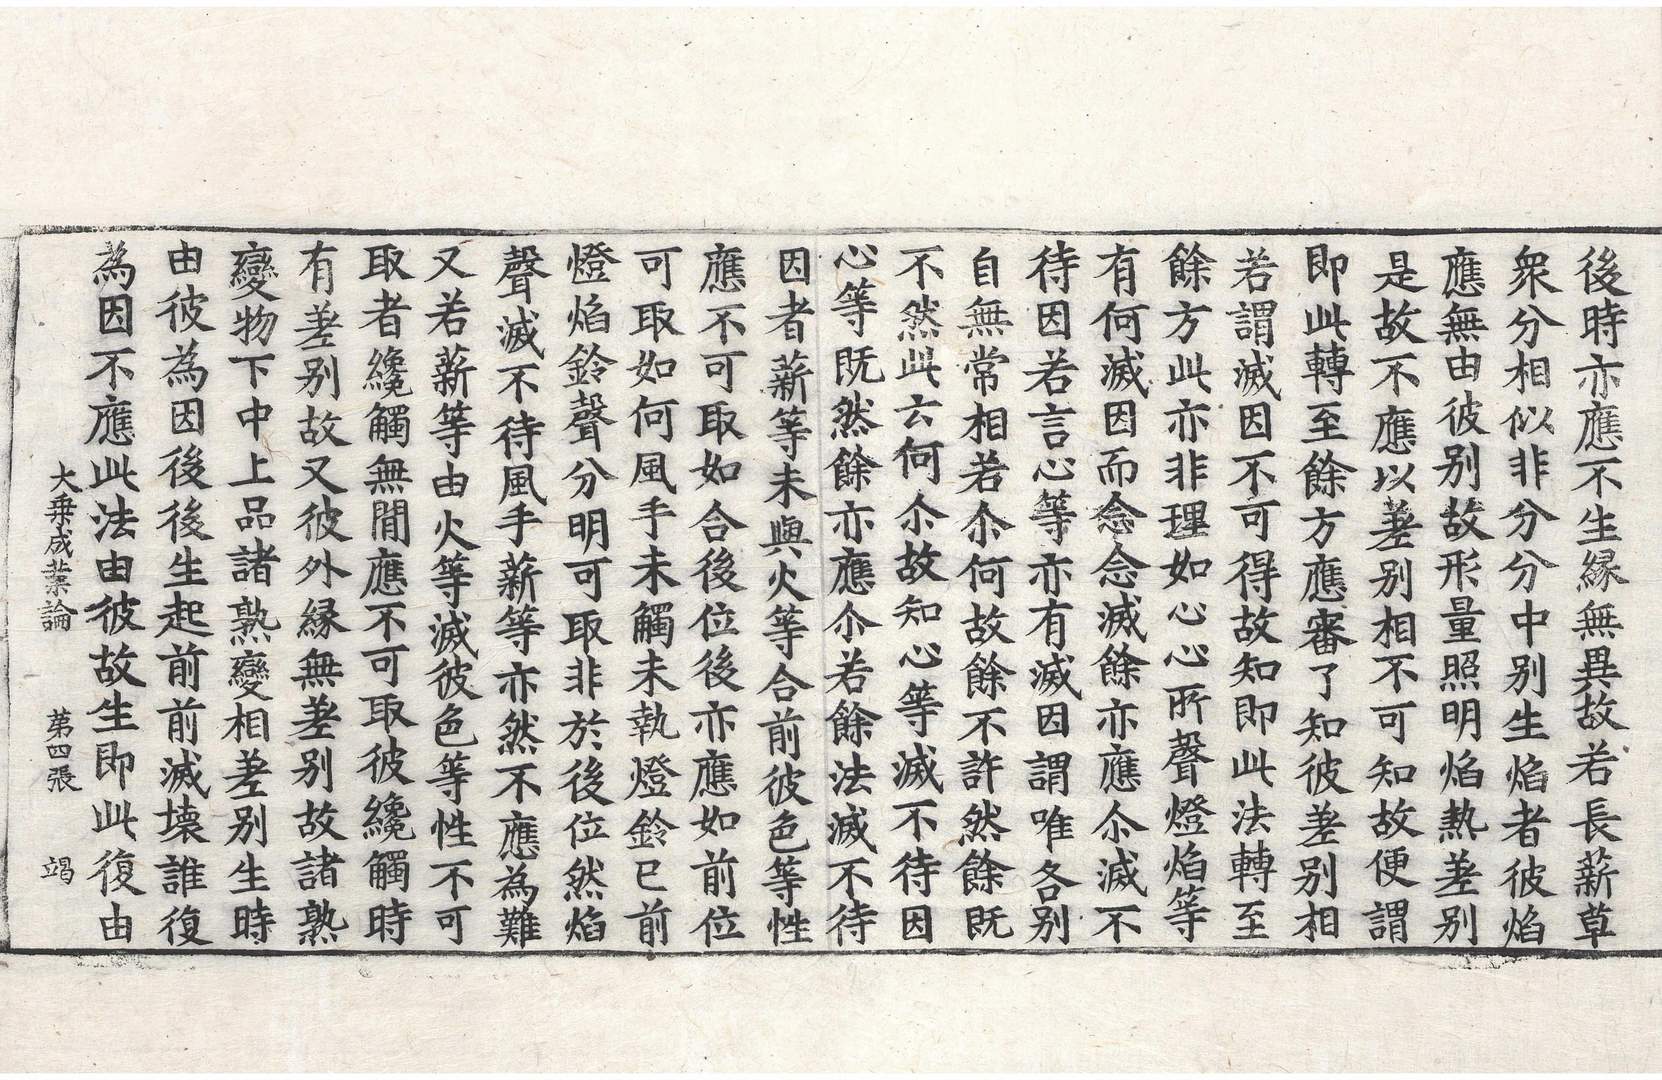 後時亦應不生緣無異故若長薪草
衆分相似非分分中別生焰者彼焰
應無由彼別故形量照明焰熱差別
是故不應以差別相不可知故便謂
即此轉至餘方應審了知彼差別相
若謂滅因不可得故知即此法轉至
餘方此亦非理如心心所聲燈焰等
有何滅因而念念滅餘亦應尒滅不
待因若言心等亦有滅因謂唯各別
自無常相若尒何故餘不許然餘既
不然此云何尒故知心等滅不待因
心等既然餘亦應尒若餘法滅不待
因者薪等未與火等合前彼色等性
應不可取如合後位後亦應如前位
可取如何風手未觸未執燈鈴已前
燈焰鈴聲分明可取非於後位然焰
聲滅不待風手薪等亦然不應為難
又若薪等由火等滅彼色等性不可
取者纔觸無間應不可取彼纔觸時
有差別故又彼外緣無差別故諸熟
變物下中上品諸熟變相差別生時
由彼為因後後生起前前滅壞誰復
為因不應此法由彼故生即此復由
大乗成業論　第四張　竭